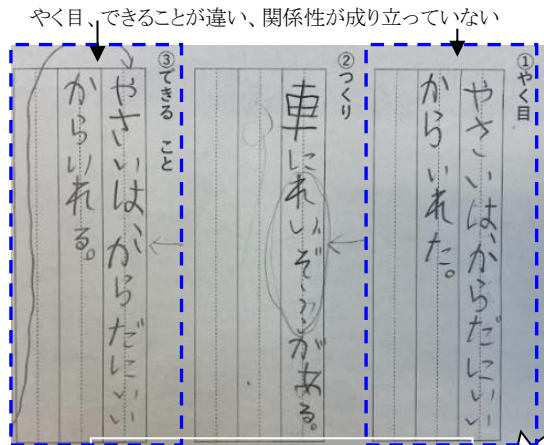 やく目、できることが違い、関係性が成り立っていない
①やく目
やさいは、からだにいい
からいれた。
②つくり
車にれいぞうこがある。
③できる こと
やさいは、からだにいい
からいれる。